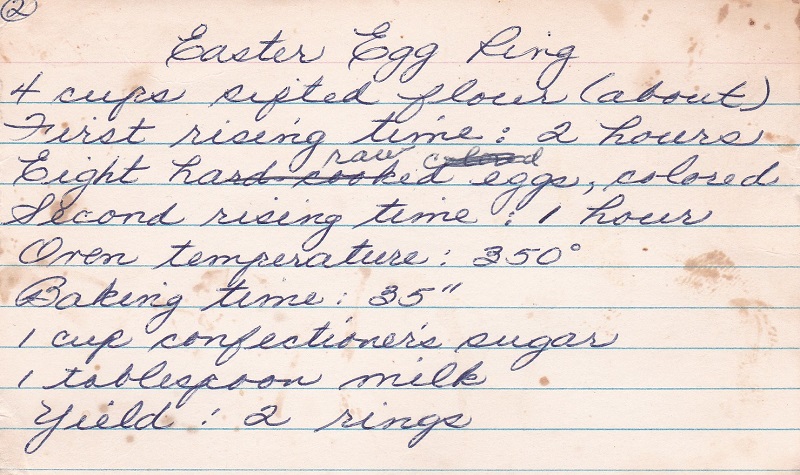 2
Easter Egg Ring
4 cups sifted flour (about)
First rising time: 2 hours
raw colored
Eight hard cooked eggs, colored
Second rising time: 1 hour
Oven temperature: 350°
Baking time: 35"
1 cup confectioner's sugar
1 tablespoon milk
Yield: 2 rings